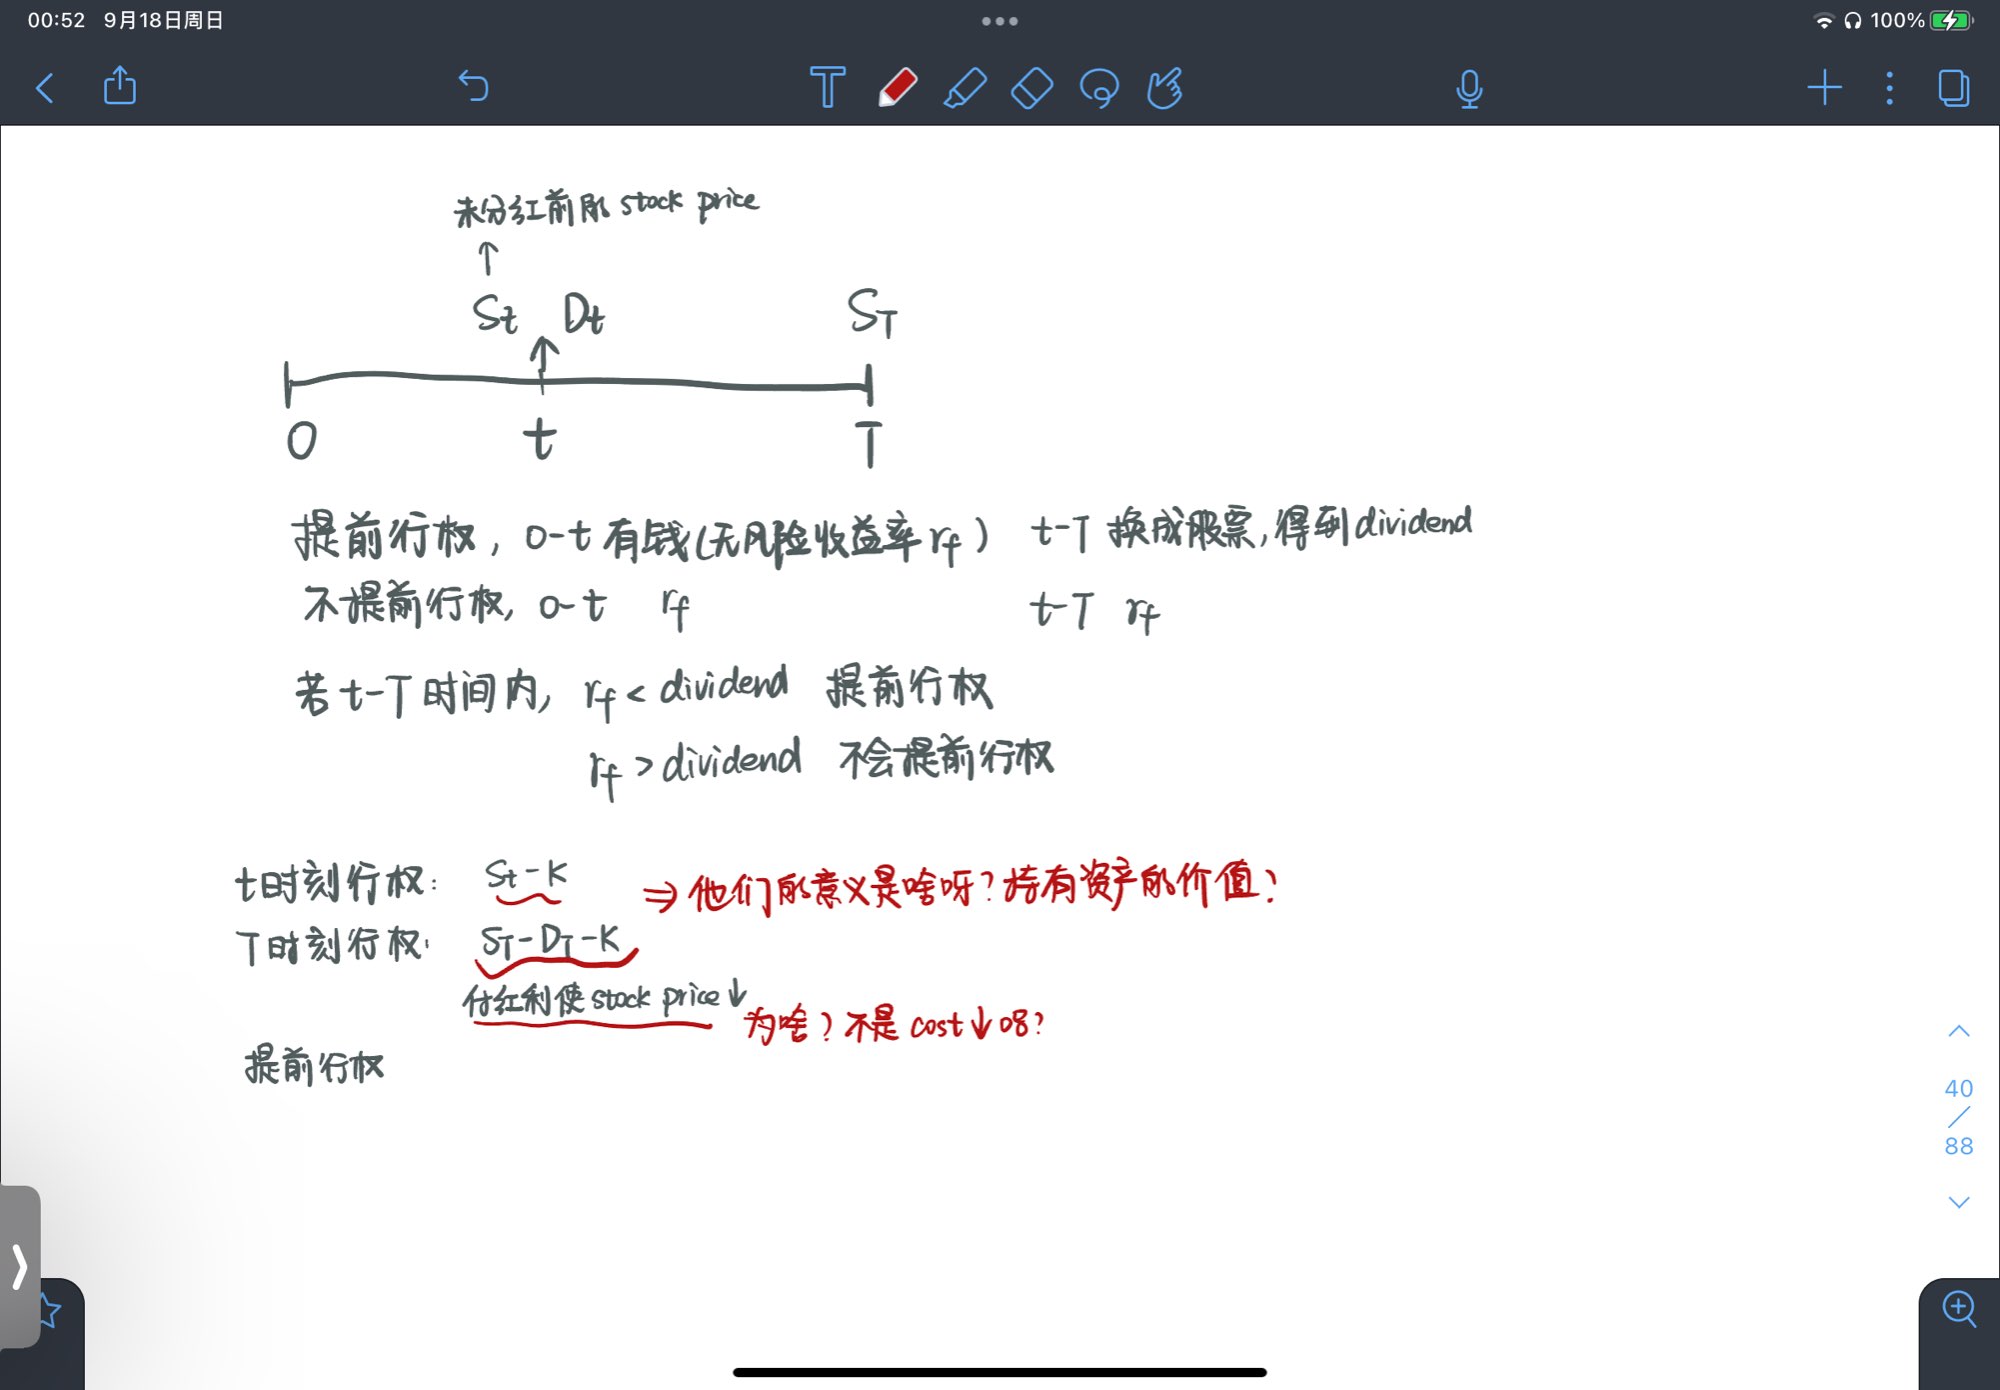 00:52 9月18日周日
100%
未分红前的 stock price
↑
St Dt ST
0 t T
提前行权, 0-t 有钱(无风险收益率 rf) t-T 换成股票,得到dividend
不提前行权, 0-t rf t-T rf
若 t-T 时间内, rf < dividend 提前行权
rf > dividend 不会提前行权
t时刻行权: St-K ⇒ 他们的意义是啥呀?持有资产的价值?
T时刻行权: ST-DT-K
付红利使 stock price↓ 为啥?不是 cost↓ 吗?
提前行权
40
/
88